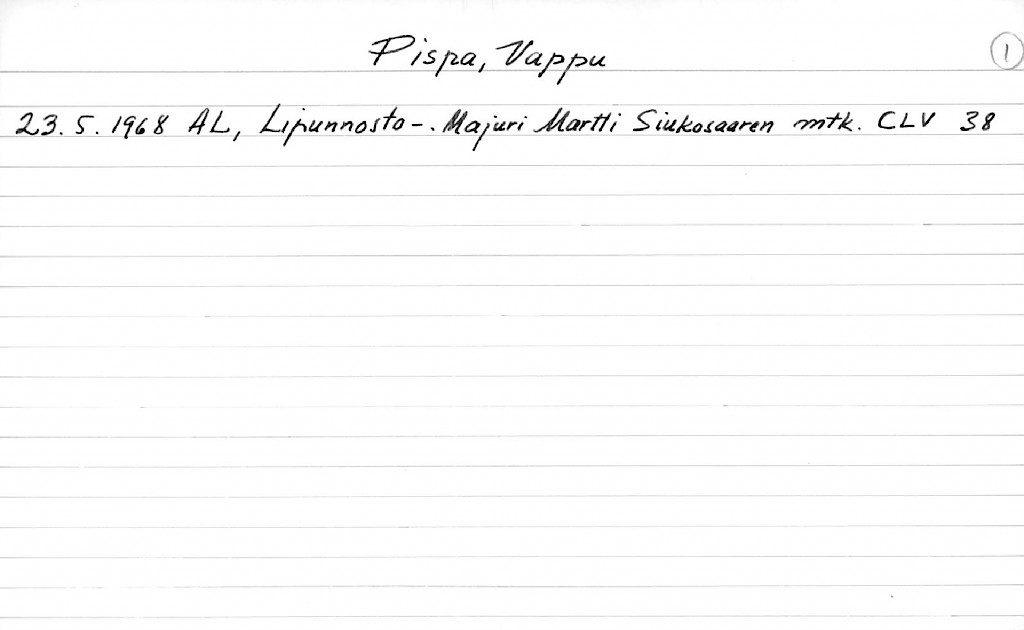 Pispa, Vappu
1
23. 5. 1968 AL, Lipunnosto-. Majuri Martti Siukosaaren mtk. CLV 38